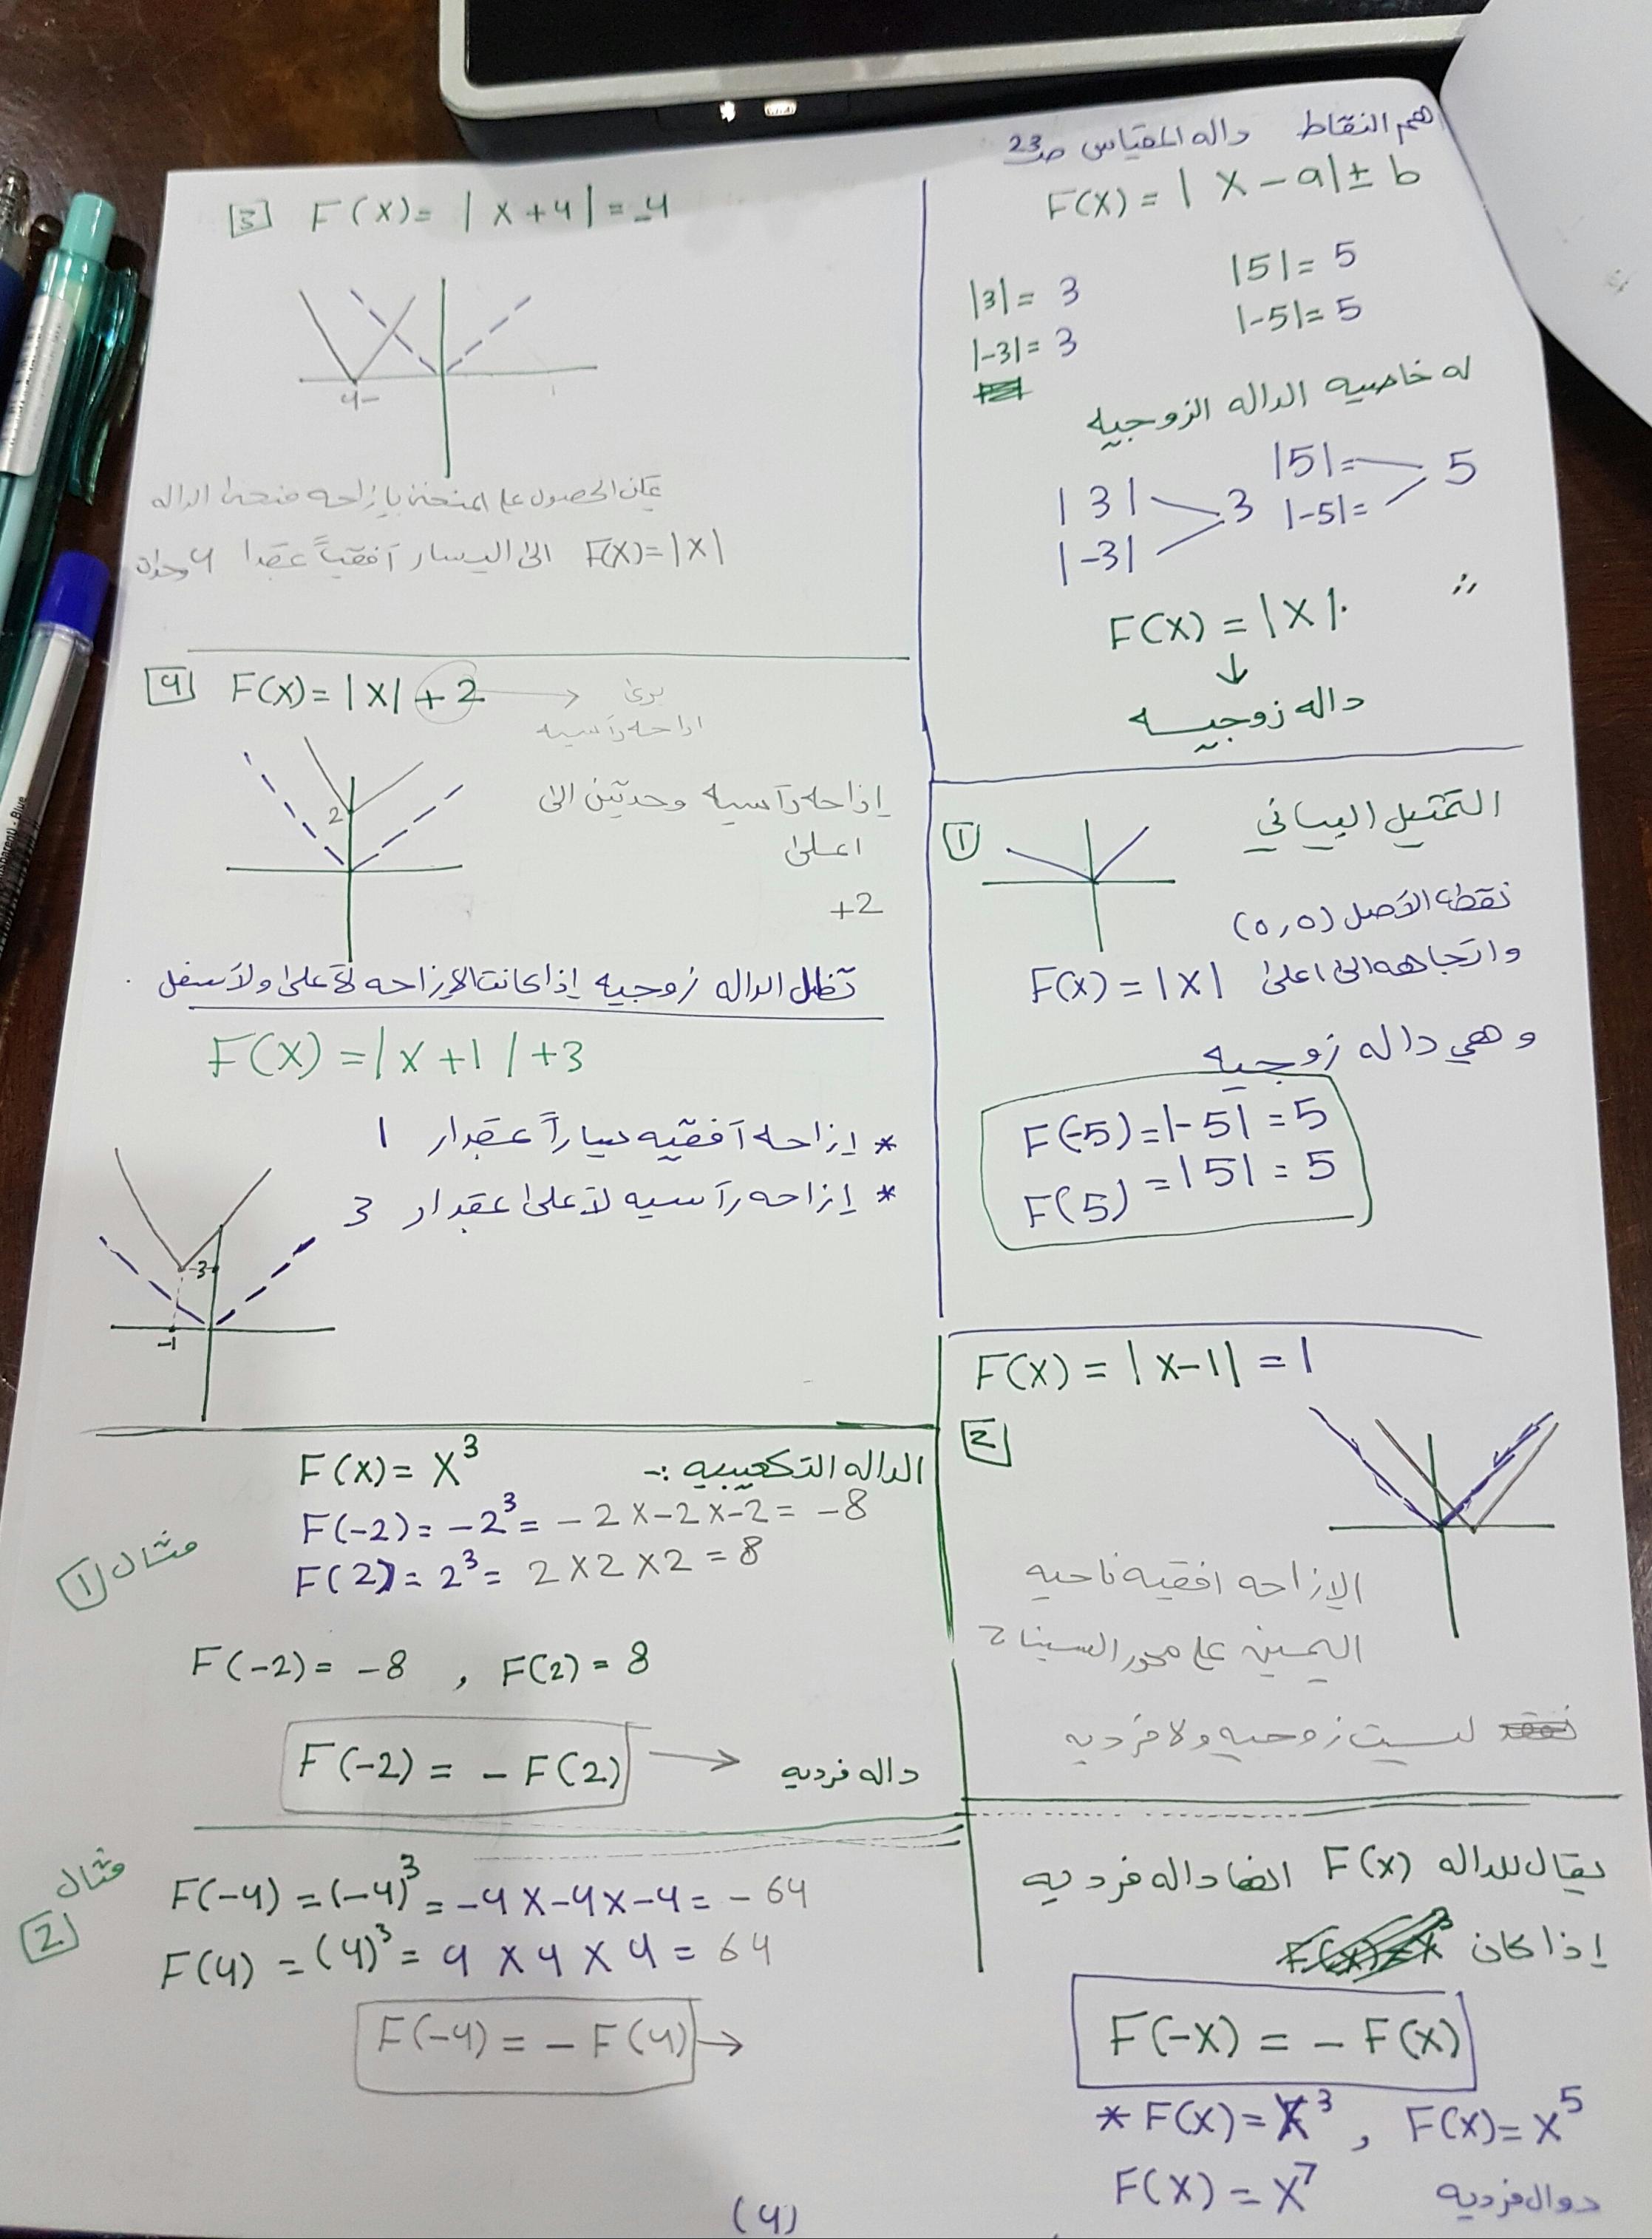 هم النقاط داله المقياس صـ23
F(X) = | X - a| ± b
|5| = 5
|-5| = 5
|3| = 3
|-3| = 3
له خاصيه الداله الزوجيه
|5| =
|-5| = 5
| 3 |
| -3 | 3
∴
F(X) = | X |.
↓
داله زوجيـــه
التمثيل البياني
1
نقطة الأصل (0,0)
واتجاهه الى اعلى F(X) = | X |
وهي داله زوجيه
F(-5) = |-5| = 5
F(5) = | 5 | = 5
F(X) = | X-1| = 1
2
الإزاحه افقيه ناحيه
اليمين على محور السينات
ليست زوجيه ولا فرديه
يقال للداله F(X) انها داله فرديه
إذا كان
F(-X) = - F(X)
* F(X) = X³ , F(X) = X⁵
F(X) = X⁷ دوال فرديه
3 F(X) = | X+4| = -4
4-
يمكن الحصول على المنحنى بإزاحه منحنى الداله
F(X) = | X | الى اليسار أفقياً 4 وحده
4 F(X) = | X | + 2 →
ازاحه رأسيه
2
إزاحه رأسيه وحدتين الى
اعلى
+2
تظل الداله زوجيه إذا كانت الإزاحه لأعلى ولأسفل .
F(X) = | X +1 | +3
* إزاحه أفقيه يساراً بمقدار 1
* إزاحه رأسيه لأعلى بمقدار 3
3
-1
الداله التكعيبيه :-
F(X) = X³
مثال 1
F(-2) = -2³ = -2 X -2 X -2 = -8
F(2) = 2³ = 2 X 2 X 2 = 8
F(-2) = -8 , F(2) = 8
F(-2) = - F(2) → داله فرديه
مثال
2
F(-4) = (-4)³ = -4 X -4 X -4 = -64
F(4) = (4)³ = 4 X 4 X 4 = 64
F(-4) = - F(4) →
(4)